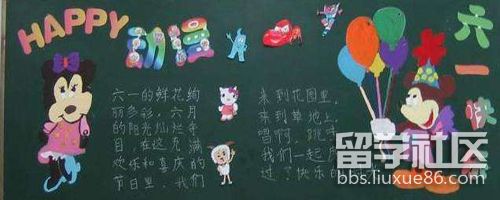 HAPPY
六一快乐
六一的鲜花绚
丽多彩，六月
的阳光灿烂夺
目，在这充满
欢乐和喜庆的
节日里，我们
来到花园里，
来到草地上，
唱啊，跳
我们一起
过了快乐的
留学社区
bbs.liuxue86.com